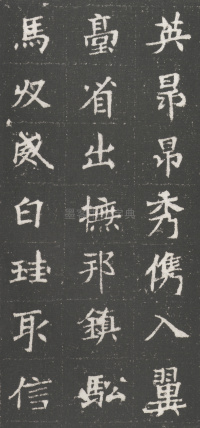 英昴昴秀儁入翼
臺省出撫邦鎮駈
馬收威白珪取信